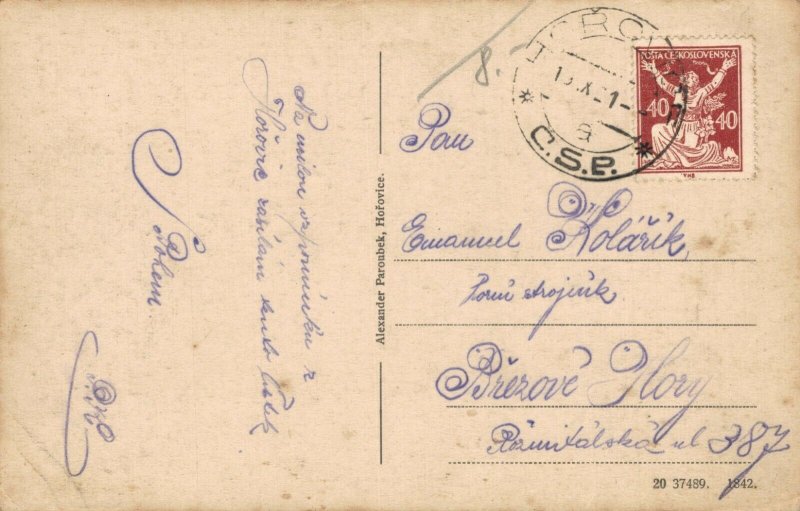 Na milou vzpomínku z
Hořovic zasílám tento lístek
S Bohem
8.
HOŘOVICE
13.X.21
a
* Č.S.P. *
POŠTA ČESKOSLOVENSKÁ
40 40
VHB
Alexander Paroubek, Hořovice.
Pan
Emanuel Kolářík
strojník
Březové Hory
Rožmitálská ul 387
20 37489. 1842.